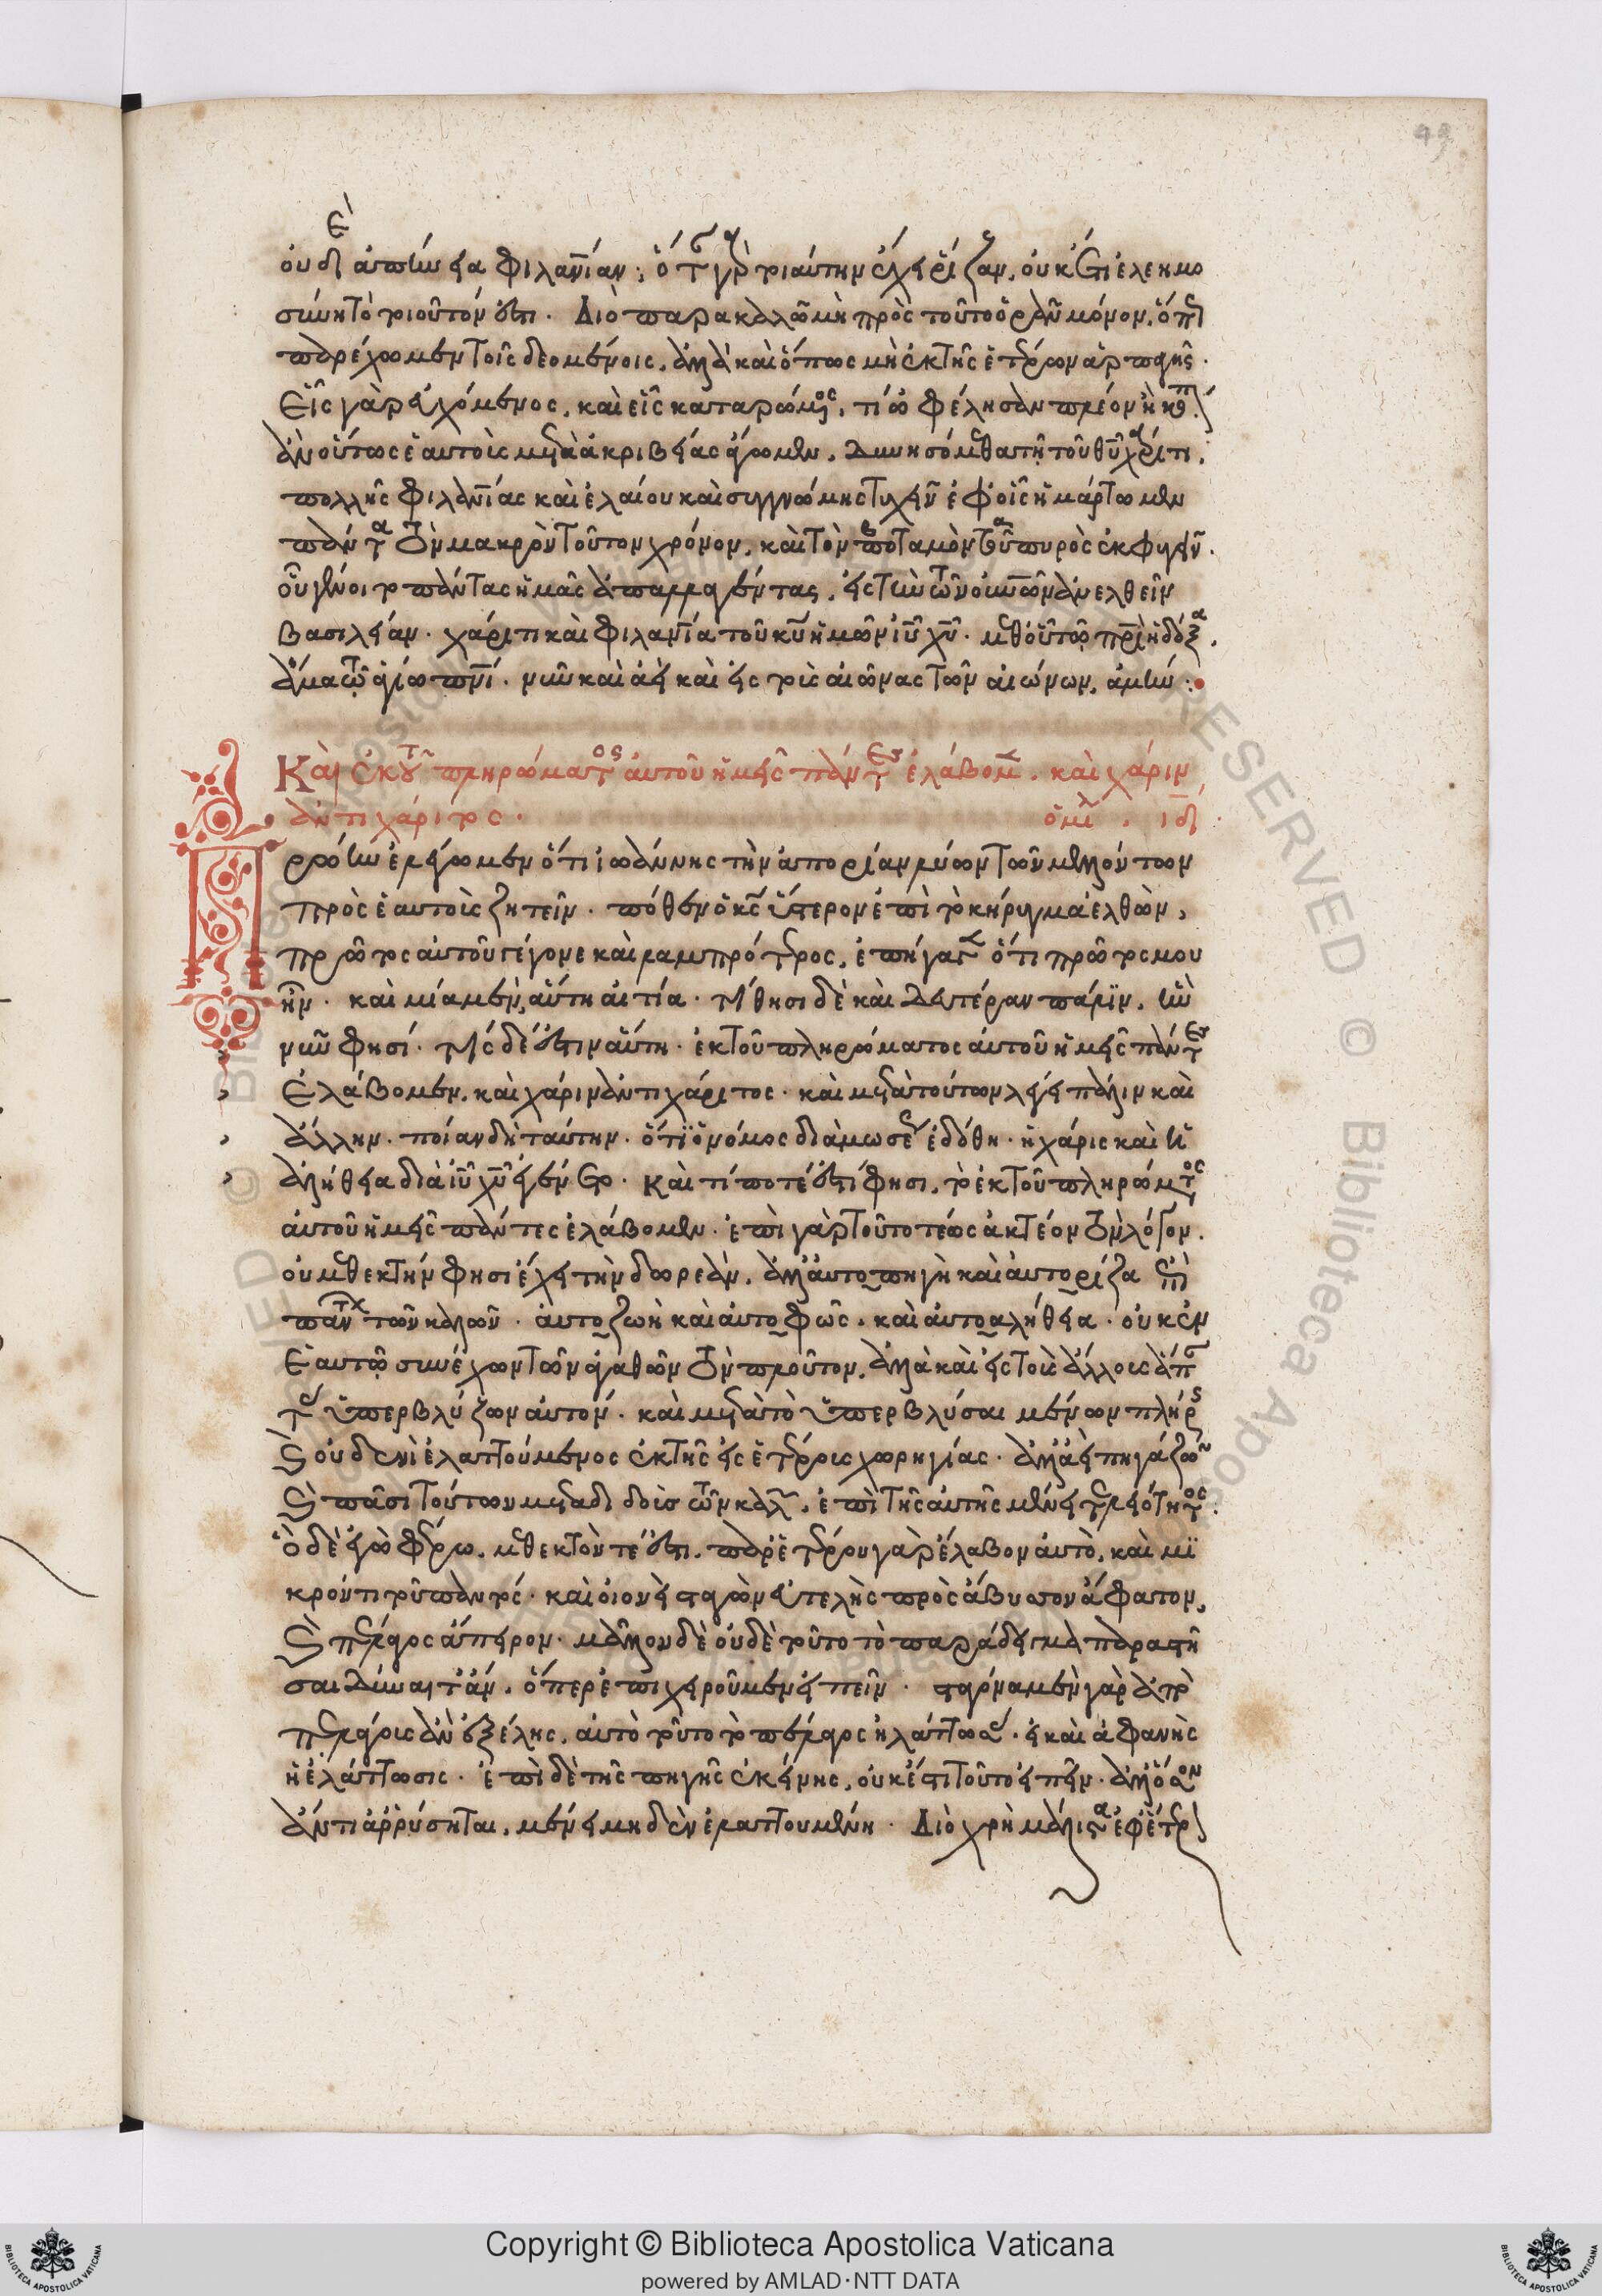 49
οὐδὲ ἀπήνεια φιλανία· ὅταν γὰρ τοιαύτην ἔχῃ ῥίζαν, οὐκέτι ἐλεημο
σύνη τὸ τοιοῦτόν ἐστι. Διὸ παρακαλῶ μὴ πρὸς τοῦτο ὁρᾶν μόνον, ὅπως
παρέχωμεν τοῖς δεομένοις, ἀλλὰ καὶ ὅπως μὴ ἐκ τῆς ἑτέρων ἁρπαγῆς.
Εἷς γὰρ εὐχόμενος, καὶ εἷς καταρώμενος, τί ὠφέλησαν πλέον ἢ κόπους
ἂν οὕτως ἑαυτοὺς μετὰ ἀκριβείας ἄγωμεν, δυνησόμεθα τῇ τοῦ θυ χάριτι,
πολλῆς φιλανίας καὶ ἐλαίου καὶ συγγνώμης τυχεῖν ἐφ' οἷς ἡμάρτομεν
πάντα τὸν μακρὸν τοῦτον χρόνον, καὶ τὸν ποταμὸν τοῦ πυρὸς ἐκφυγεῖν.
οὗ γένοιτο πάντας ἡμᾶς ἀπαλλαγέντας, εἰς τὴν τῶν οὐνῶν ἀνελθεῖν
βασιλείαν. χάριτι καὶ φιλανία τοῦ κυ ἡμῶν ιυ χυ. μεθ' οὗ τῷ πρι ἡ δόξα,
ἅμα τῷ ἁγίῳ πνι. νῦν καὶ ἀεὶ καὶ εἰς τοὺς αἰῶνας τῶν αἰώνων, ἀμήν:
Καὶ ἐκ τοῦ πληρώματος αὐτοῦ ἡμεῖς πάντες ἐλάβομεν. καὶ χάριν
ἀντὶ χάριτος. ὁμιλ. ιδ.
Πρώην ἐλέγομεν ὅτι ἰωάννης τὴν ἀπορίαν λύων τῶν μελλόντων
πρὸς ἑαυτοὺς ζητεῖν. πόθεν ὁ κς ὕστερον ἐπὶ τὸ κήρυγμα ἐλθὼν,
πρῶτος αὐτοῦ γέγονε καὶ λαμπρότερος, ἐπήγαγεν ὅτι πρῶτός μου
ἦν. καὶ μία μὲν, αὕτη αἰτία. τίθησι δὲ καὶ δευτέραν πάλιν, ἣν
νῦν φησί. τίς δέ ἐστιν αὕτη. ἐκ τοῦ πληρώματος αὐτοῦ ἡμεῖς πάντες
Ἐλάβομεν, καὶ χάριν ἀντὶ χάριτος. καὶ μετὰ τούτων λέγει πάλιν καὶ
ἄλλην. ποίαν δὴ ταύτην. ὅτι ὁ νόμος διὰ μωσέως ἐδόθη. ἡ χάρις καὶ ἡ
ἀλήθεια διὰ ιυ χυ ἐγένετο. Καὶ τί ποτέ ἐστί φησι, τὸ ἐκ τοῦ πληρώματος
αὐτοῦ ἡμεῖς πάντες ἐλάβομεν. ἐπὶ γὰρ τοῦτο τέως ἀκτέον τὸν λόγον.
οὐ μεθεκτήν φησι ἔχει τὴν δωρεὰν, ἀλλ' αὐτοπηγὴ καὶ αὐτορίζα ἐστὶ
πάντων τῶν καλῶν. αὐτοζωὴ καὶ αὐτοφῶς, καὶ αὐτοαλήθεια. οὐκ ἐν
Ἑαυτῷ συνέχων τῶν ἀγαθῶν τὸν πλοῦτον, ἀλλὰ καὶ εἰς τοὺς ἄλλους ἅπαντας
ὑπερβλύζων αὐτόν. καὶ μετὰ τὸ ὑπερβλύσαι μένων πλήρης
καὶ οὐδενὶ ἐλαττούμενος ἐκ τῆς εἰς ἑτέρους χορηγίας. ἀλλ' ἀεὶ πηγάζων
καὶ πᾶσι τούτων μεταδιδοὺς τῶν καλῶν, ἐπὶ τῆς αὐτῆς μένει τελειότητος.
ὃ δὲ ἐγὼ φέρω, μεθεκτόν τέ ἐστι. παρ' ἑτέρου γὰρ ἔλαβον αὐτὸ, καὶ μι
κρόν τι τοῦ παντός. καὶ οἱονεὶ σταγὼν εὐτελὴς πρὸς ἄβυσσον ἄφατον,
καὶ πέλαγος ἄπειρον. μᾶλλον δὲ οὐδὲ τοῦτο τὸ παράδειγμα παραστῆ
σαι δύναιτ' ἂν, ὅπερ ἐπιχειροῦμεν εἰπεῖν. σταγόνα μὲν γὰρ ἀπὸ
πελάγους ἂν ἐξέλῃς, αὐτὸ τοῦτο τὸ πέλαγος ἠλάττωσας. εἰ καὶ ἀφανὴς
ἡ ἐλάττωσις. ἐπὶ δὲ τῆς πηγῆς ἐκείνης, οὐκ ἔστι τοῦτο εἰπεῖν. ἀλλ' ὅσον
ἄν τις ἀρρύσηται, μένει μηδὲν ἐλαττουμένη. Διὸ χρὴ μάλιστα ἐφ' ἕτερ
Copyright © Biblioteca Apostolica Vaticana
powered by AMLAD·NTT DATA